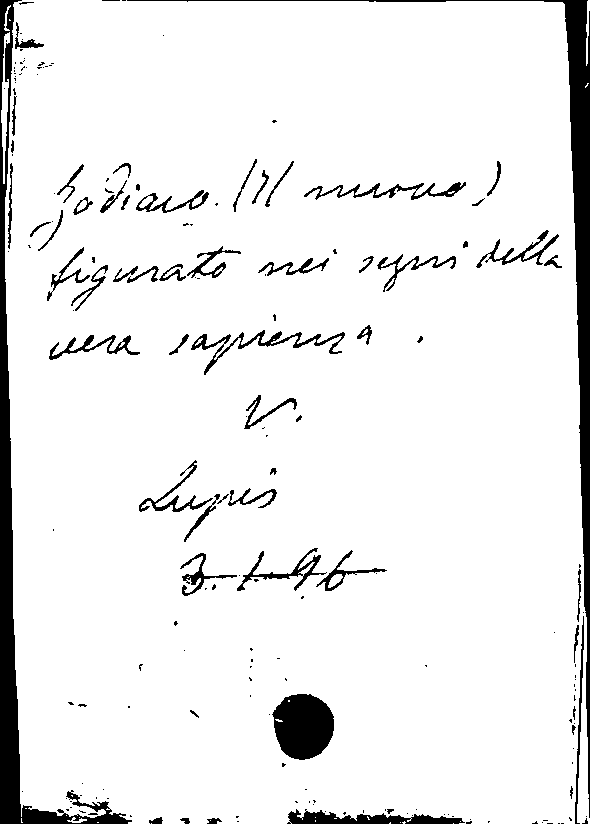 Zodiaco. (Il nuovo)
figurato nei segni della
vera sapienza.
V.
Lupis
3.1.96